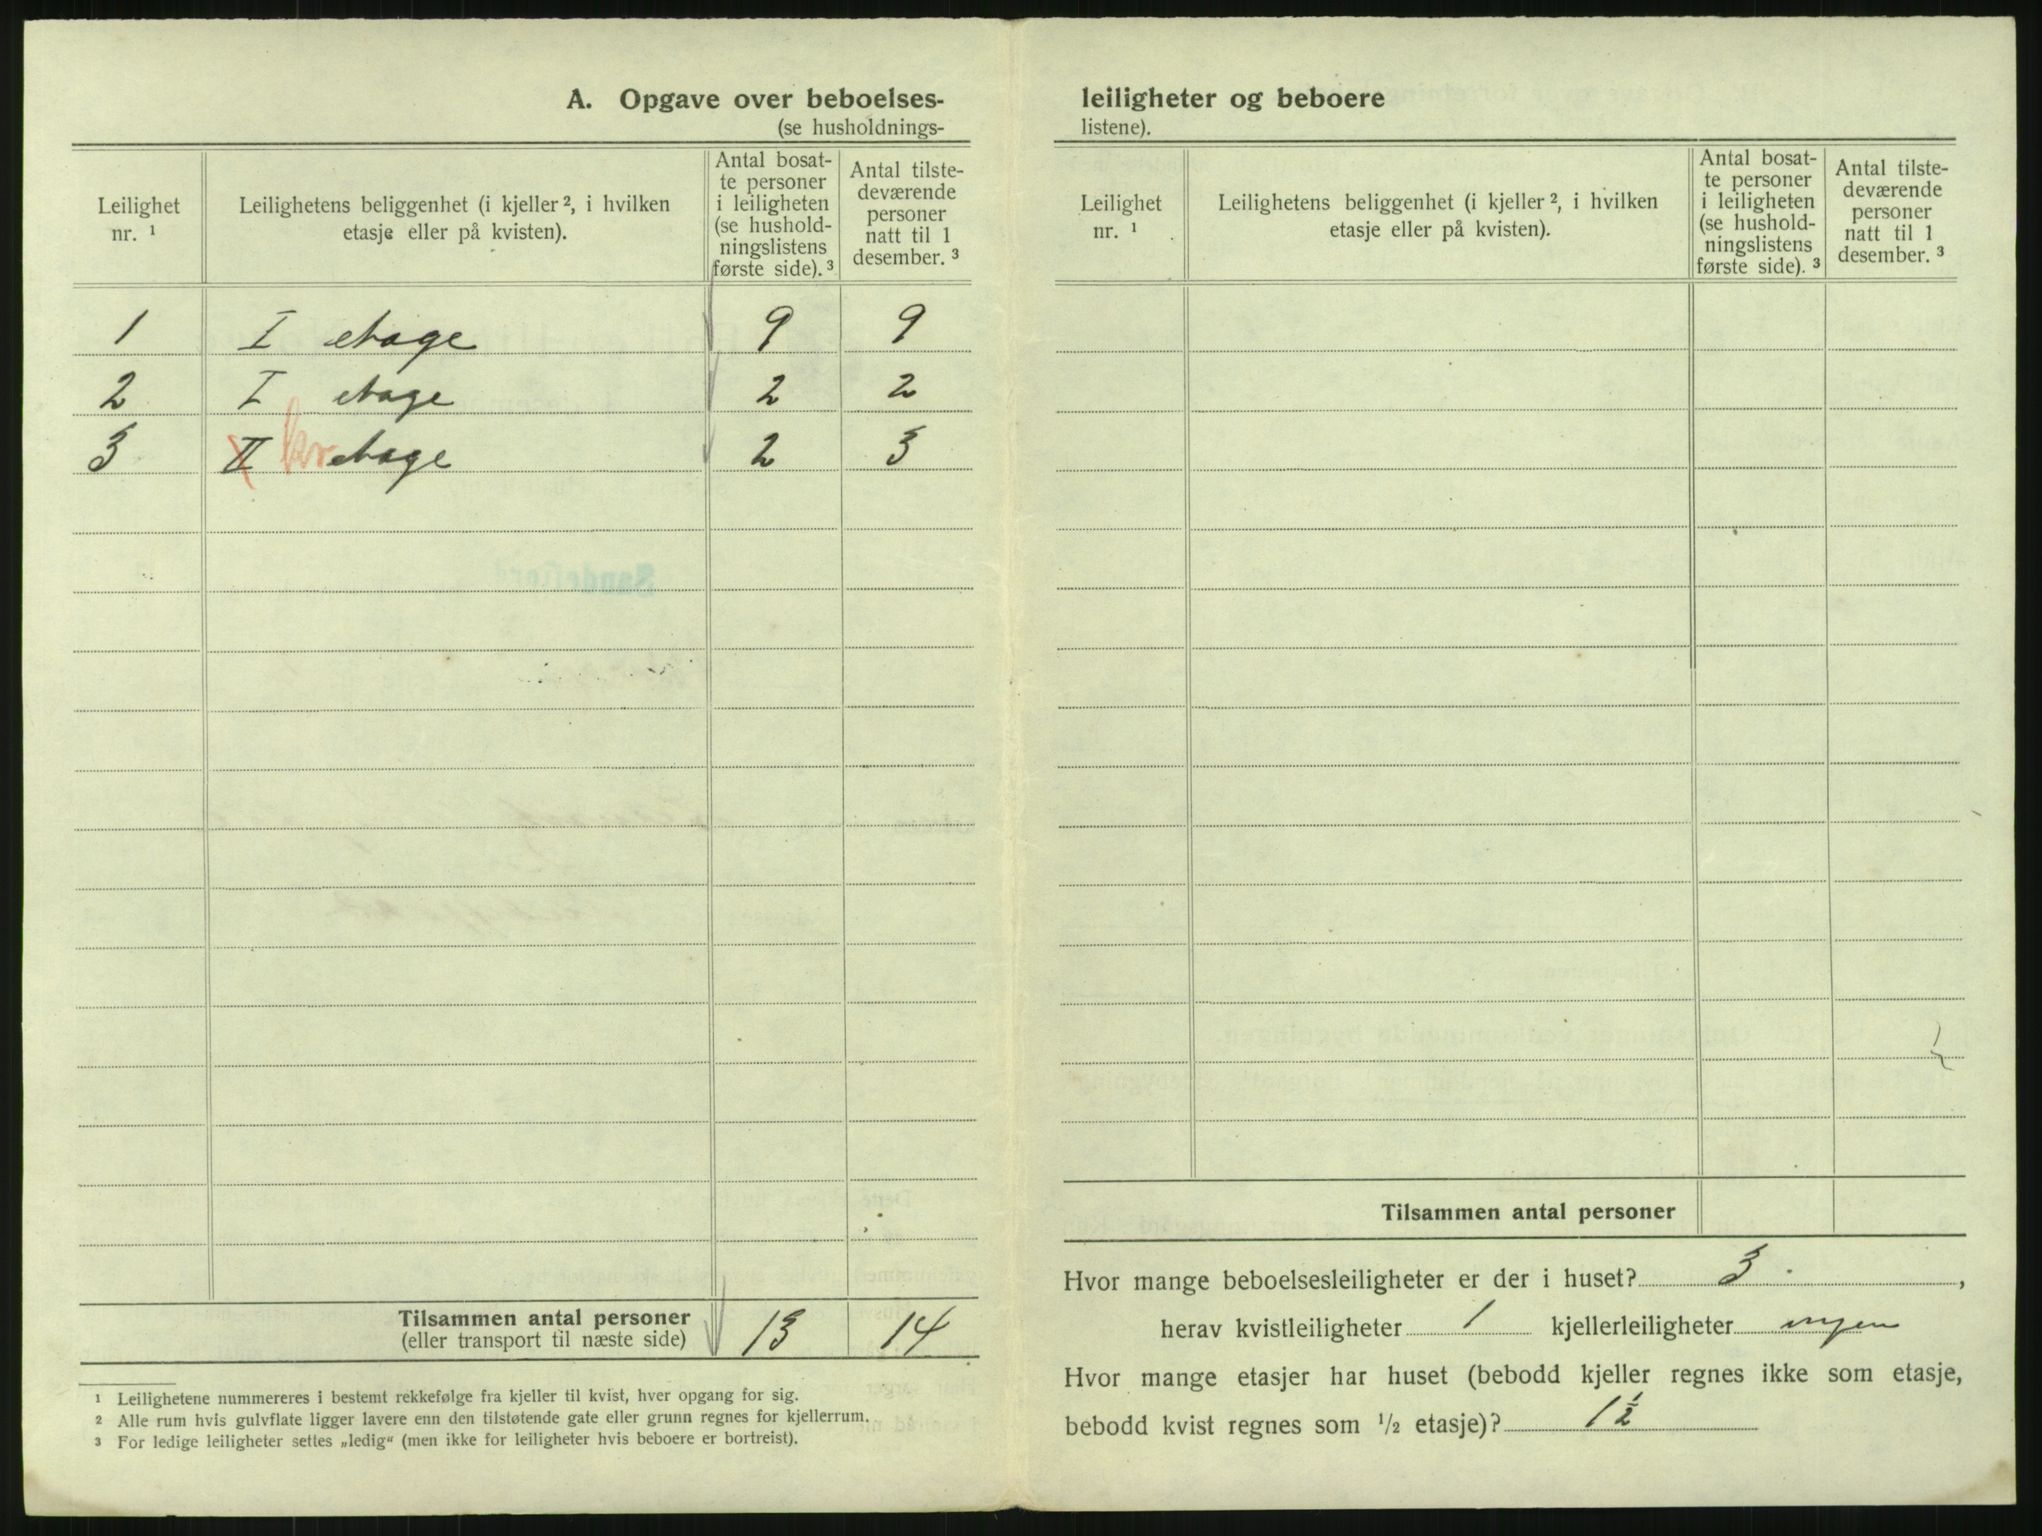 A. Opgave over beboelses-
(se husholdnings-
Leilighet nr. ¹
Leilighetens beliggenhet (i kjeller ², i hvilken etasje eller på kvisten).
Antal bosat-
te personer
i leiligheten
(se hushold-
ningslistens
første side). ³
Antal tilste-
deværende
personer
natt til 1
desember. ³
1 I etage 9 9
2 I etage 2 2
3 II kv etage 2 3
Sandefjord
Tilsammen antal personer 13 14
(eller transport til næste side)
¹ Leilighetene nummereres i bestemt rekkefølge fra kjeller til kvist, hver opgang for sig.
² Alle rum hvis gulvflate ligger lavere enn den tilstøtende gate eller grunn regnes for kjellerrum.
³ For ledige leiligheter settes „ledig“ (men ikke for leiligheter hvis beboere er bortreist).
leiligheter og beboere
listene).
Leilighet nr. ¹
Leilighetens beliggenhet (i kjeller ², i hvilken etasje eller på kvisten).
Antal bosat-
te personer
i leiligheten
(se hushold-
ningslistens
første side). ³
Antal tilste-
deværende
personer
natt til 1
desember. ³
Tilsammen antal personer
Hvor mange beboelsesleiligheter er der i huset? 3 ,
herav kvistleiligheter 1 kjellerleiligheter ingen
Hvor mange etasjer har huset (bebodd kjeller regnes ikke som etasje,
bebodd kvist regnes som ½ etasje)? 1 ½